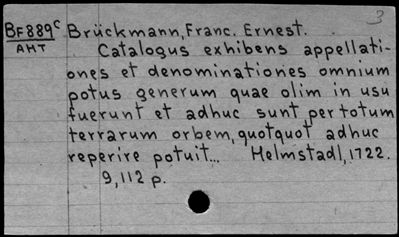 3
BF889c Brückmann, Franc. Ernest.
AHT Catalogus exhibens appellati-
ones et denominationes omnium
potus generum quae olim in usu
fuerunt et adhuc sunt per totum
terrarum orbem, quotquot adhuc
reperire potuit... Helmstadl, 1722.
9, 112 p.